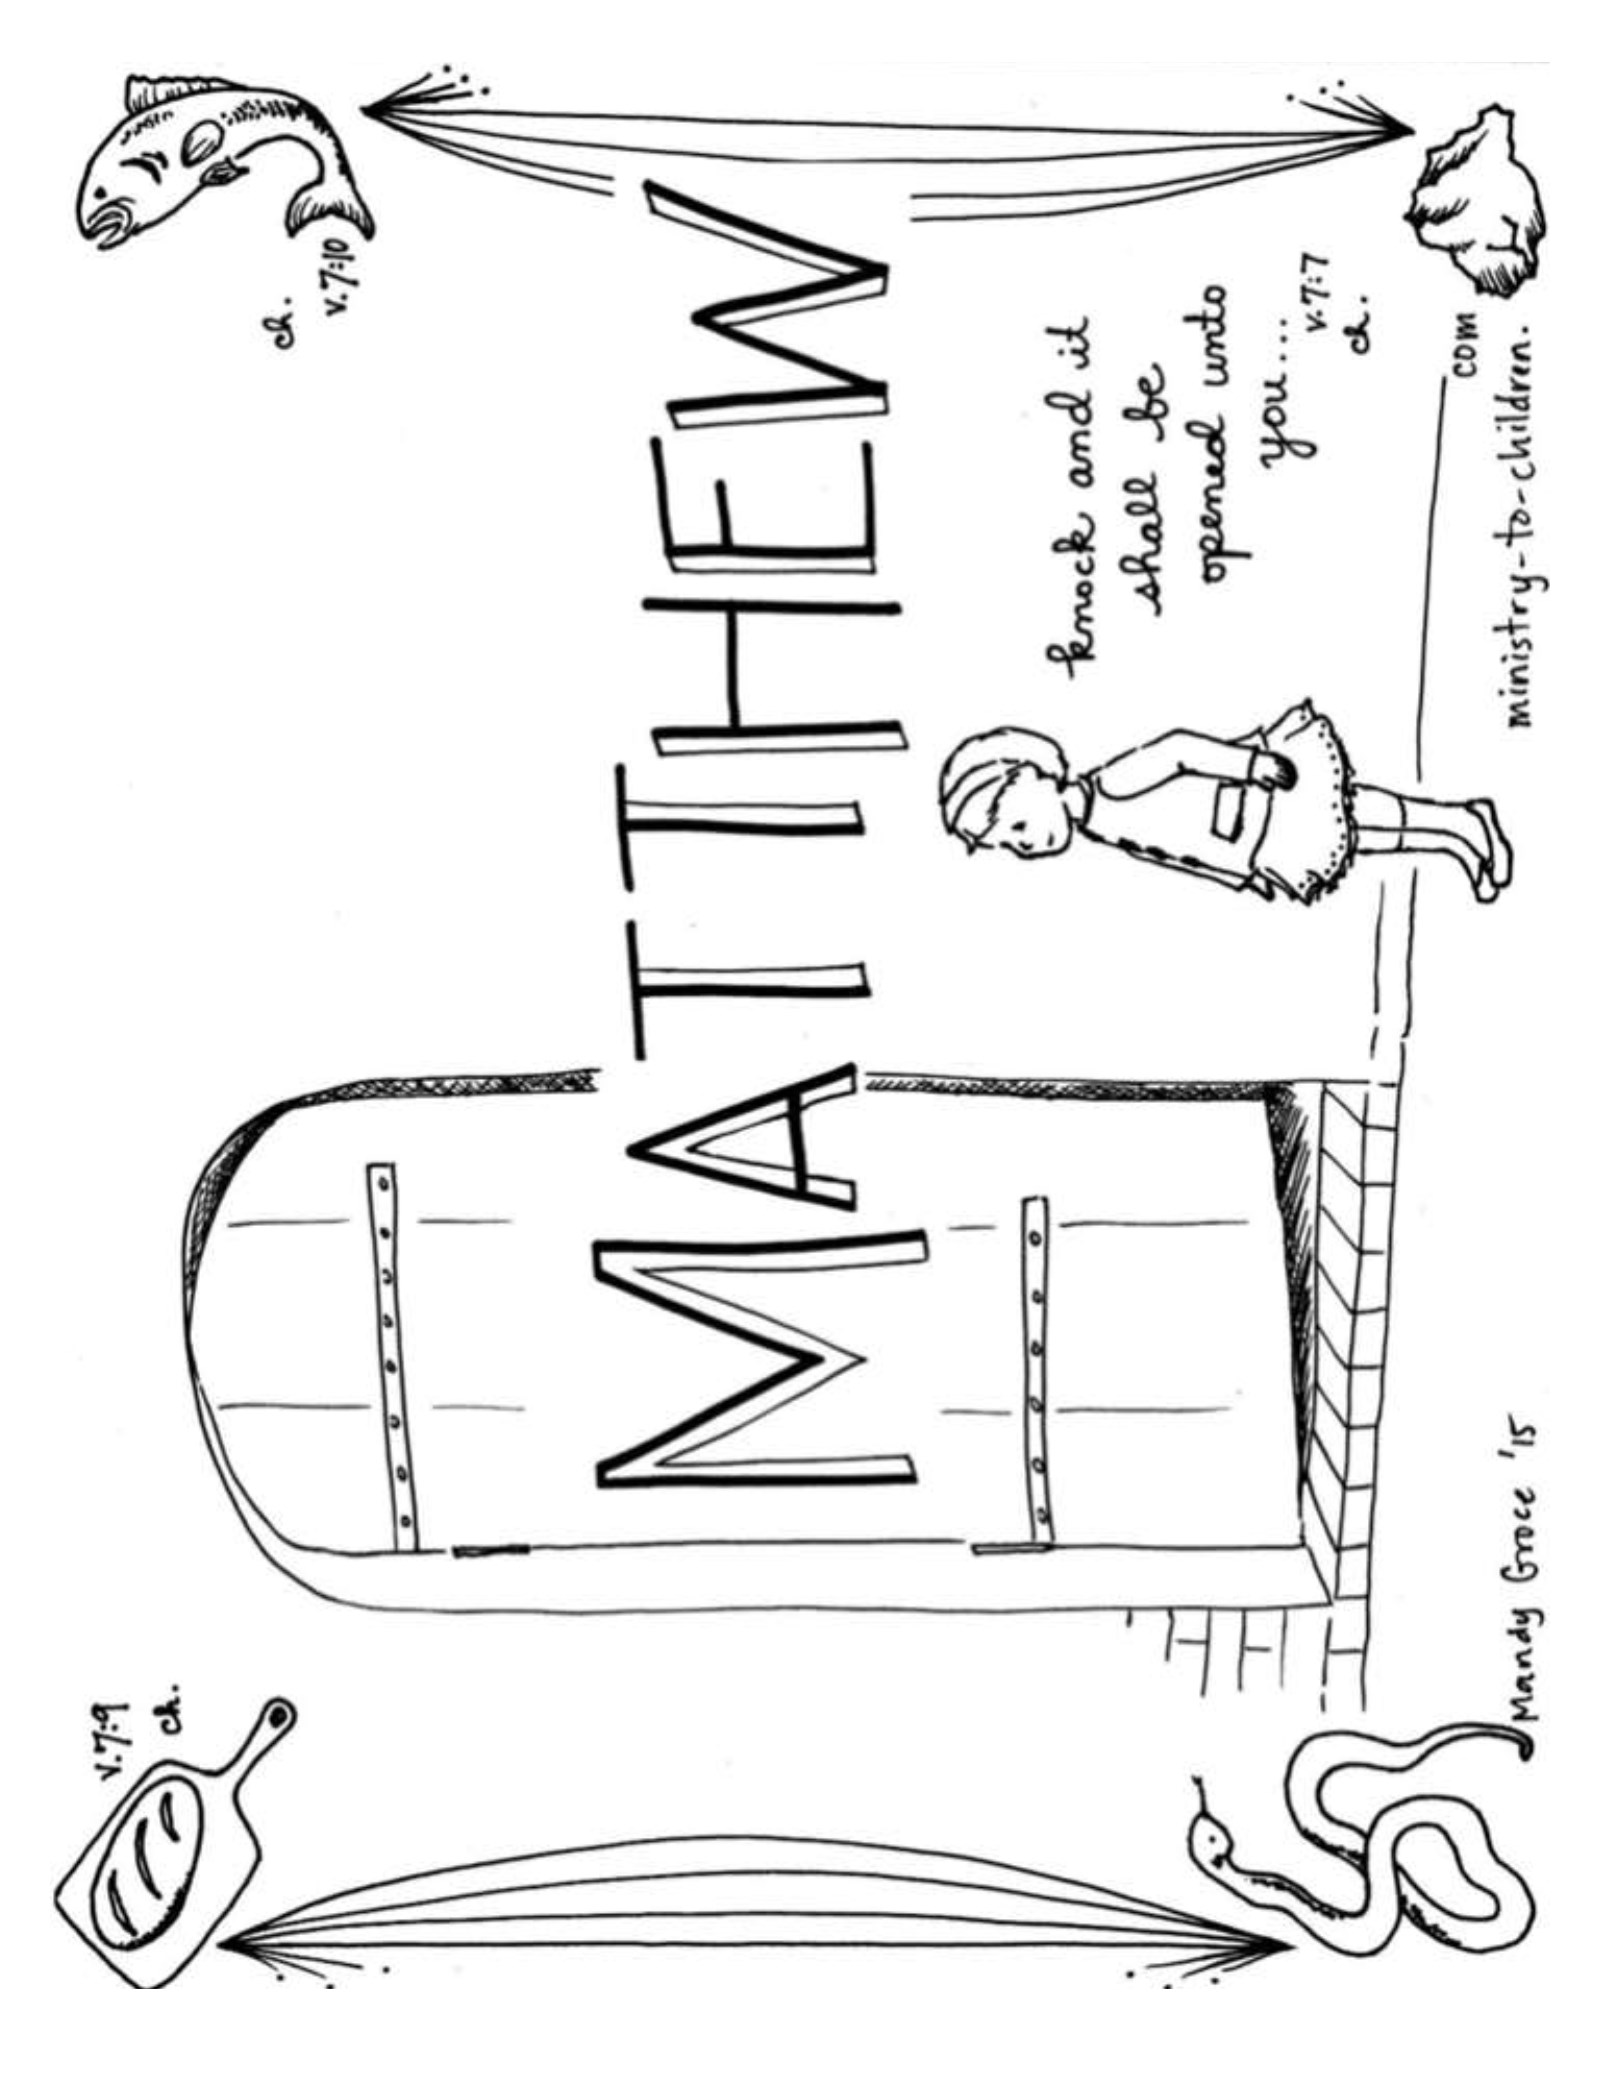 v.7:9
ch.
ch.
v.7:10
MATTHEW
knock and it
shall be
opened unto
you...
v.7:7
ch.
Mandy Groce '15
ministry-to-children.
com